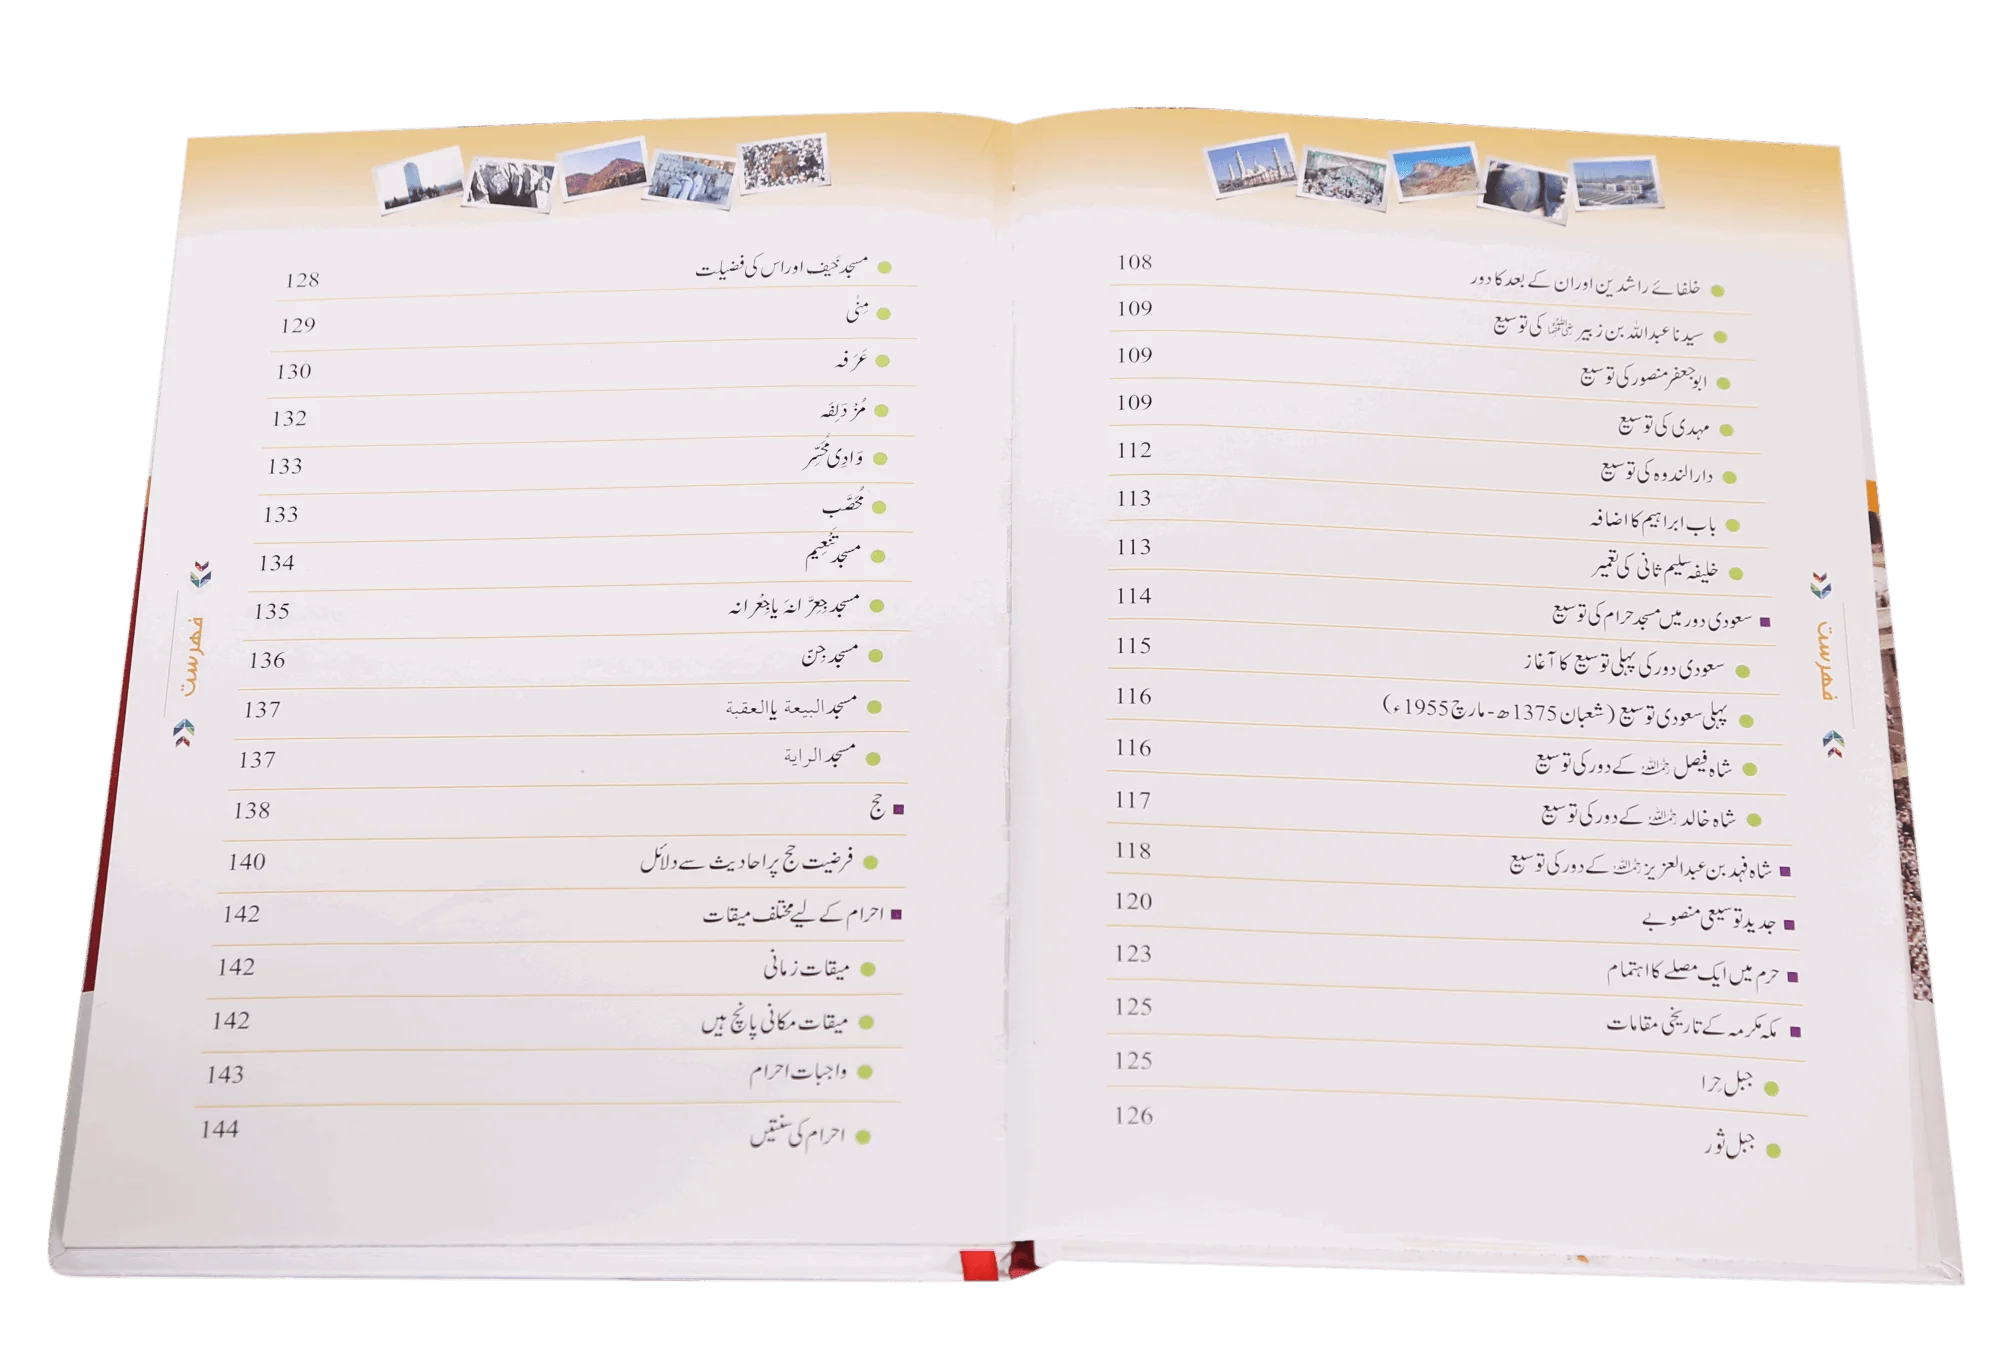 خلفائے راشدین اور ان کے بعد کا دور 108
سیدنا عبداللہ بن زبیر رضی اللہ عنہما کی توسیع 109
ابو جعفر منصور کی توسیع 109
مہدی کی توسیع 109
دارالندوہ کی توسیع 112
باب ابراہیم کا اضافہ 113
خلیفہ سلیم ثانی کی تعمیر 113
سعودی دور میں مسجد حرام کی توسیع 114
سعودی دور کی پہلی توسیع کا آغاز 115
پہلی سعودی توسیع (شعبان 1375ھ - مارچ 1955ء) 116
شاہ فیصل رحمہ اللہ کے دور کی توسیع 116
شاہ خالد رحمہ اللہ کے دور کی توسیع 117
شاہ فہد بن عبدالعزیز رحمہ اللہ کے دور کی توسیع 118
جدید توسیعی منصوبے 120
حرم میں ایک مصلے کا اہتمام 123
مکہ مکرمہ کے تاریخی مقامات 125
جبل حِرا 125
جبل ثور 126
فهرست
مسجد خَیف اور اس کی فضیلت 128
مِنٰی 129
عَرَفہ 130
مُزْدَلِفَہ 132
وَادِی مُحَسِّر 133
مُحَصَّب 133
مسجد تَنْعِیم 134
مسجد جِعِرَّانَہ یا جِعْرانہ 135
مسجد جِنّ 136
مسجد البیعة یا العقبة 137
مسجد الرایة 137
حج 138
فرضیت حج پر احادیث سے دلائل 140
احرام کے لیے مختلف میقات 142
میقات زمانی 142
میقات مکانی پانچ ہیں 142
واجبات احرام 143
احرام کی سنتیں 144
فهرست